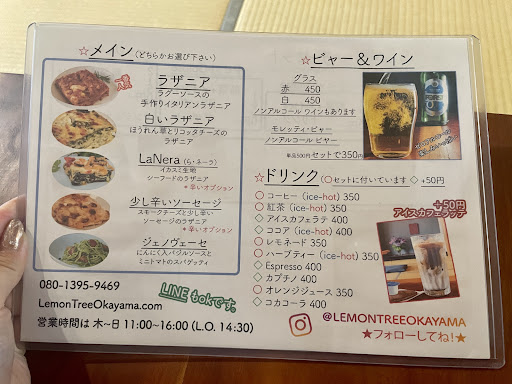 ☆メイン(どちらかお選び下さい)
一番人気
ラザニア
ラグーソースの
手作りイタリアンラザニア
白いラザニア
ほうれん草とリコッタチーズの
ラザニア
LaNera (ら・ネーラ)
イカスミ生地
シーフードのラザニア
+辛いオプション
少し辛いソーセージ
スモークチーズと少し辛い
ソーセージのラザニア
+辛いオプション
ジェノヴェーセ
にんにく入バジルソースと
ミニトマトのスパゲッティ
080-1395-9469
LINEもokです。
LemonTreeOkayama.com
営業時間は 木~日 11:00~16:00 (L.O. 14:30)
☆ビャー&ワイン
グラス
赤 450
白 450
ノンアルコール ワインもあります
モレッティ・ビャー
ノンアルコール ビヤー
単品500円 セットで350円
☆ドリンク (○セットに付いています ◇+50円)
○コーヒー (ice-hot) 350
○紅茶 (ice-hot) 350
◇アイスカフェラテ 400
◇ココア (ice-hot) 400
○レモネード 350
○ハーブティー (ice-hot) 350
◇Espresso 400
◇カプチノ 400
○オレンジジュース 350
◇コカコーラ 400
+50円
アイスカフェラッテ
@LEMONTREEOKAYAMA
★フォローしてね!★